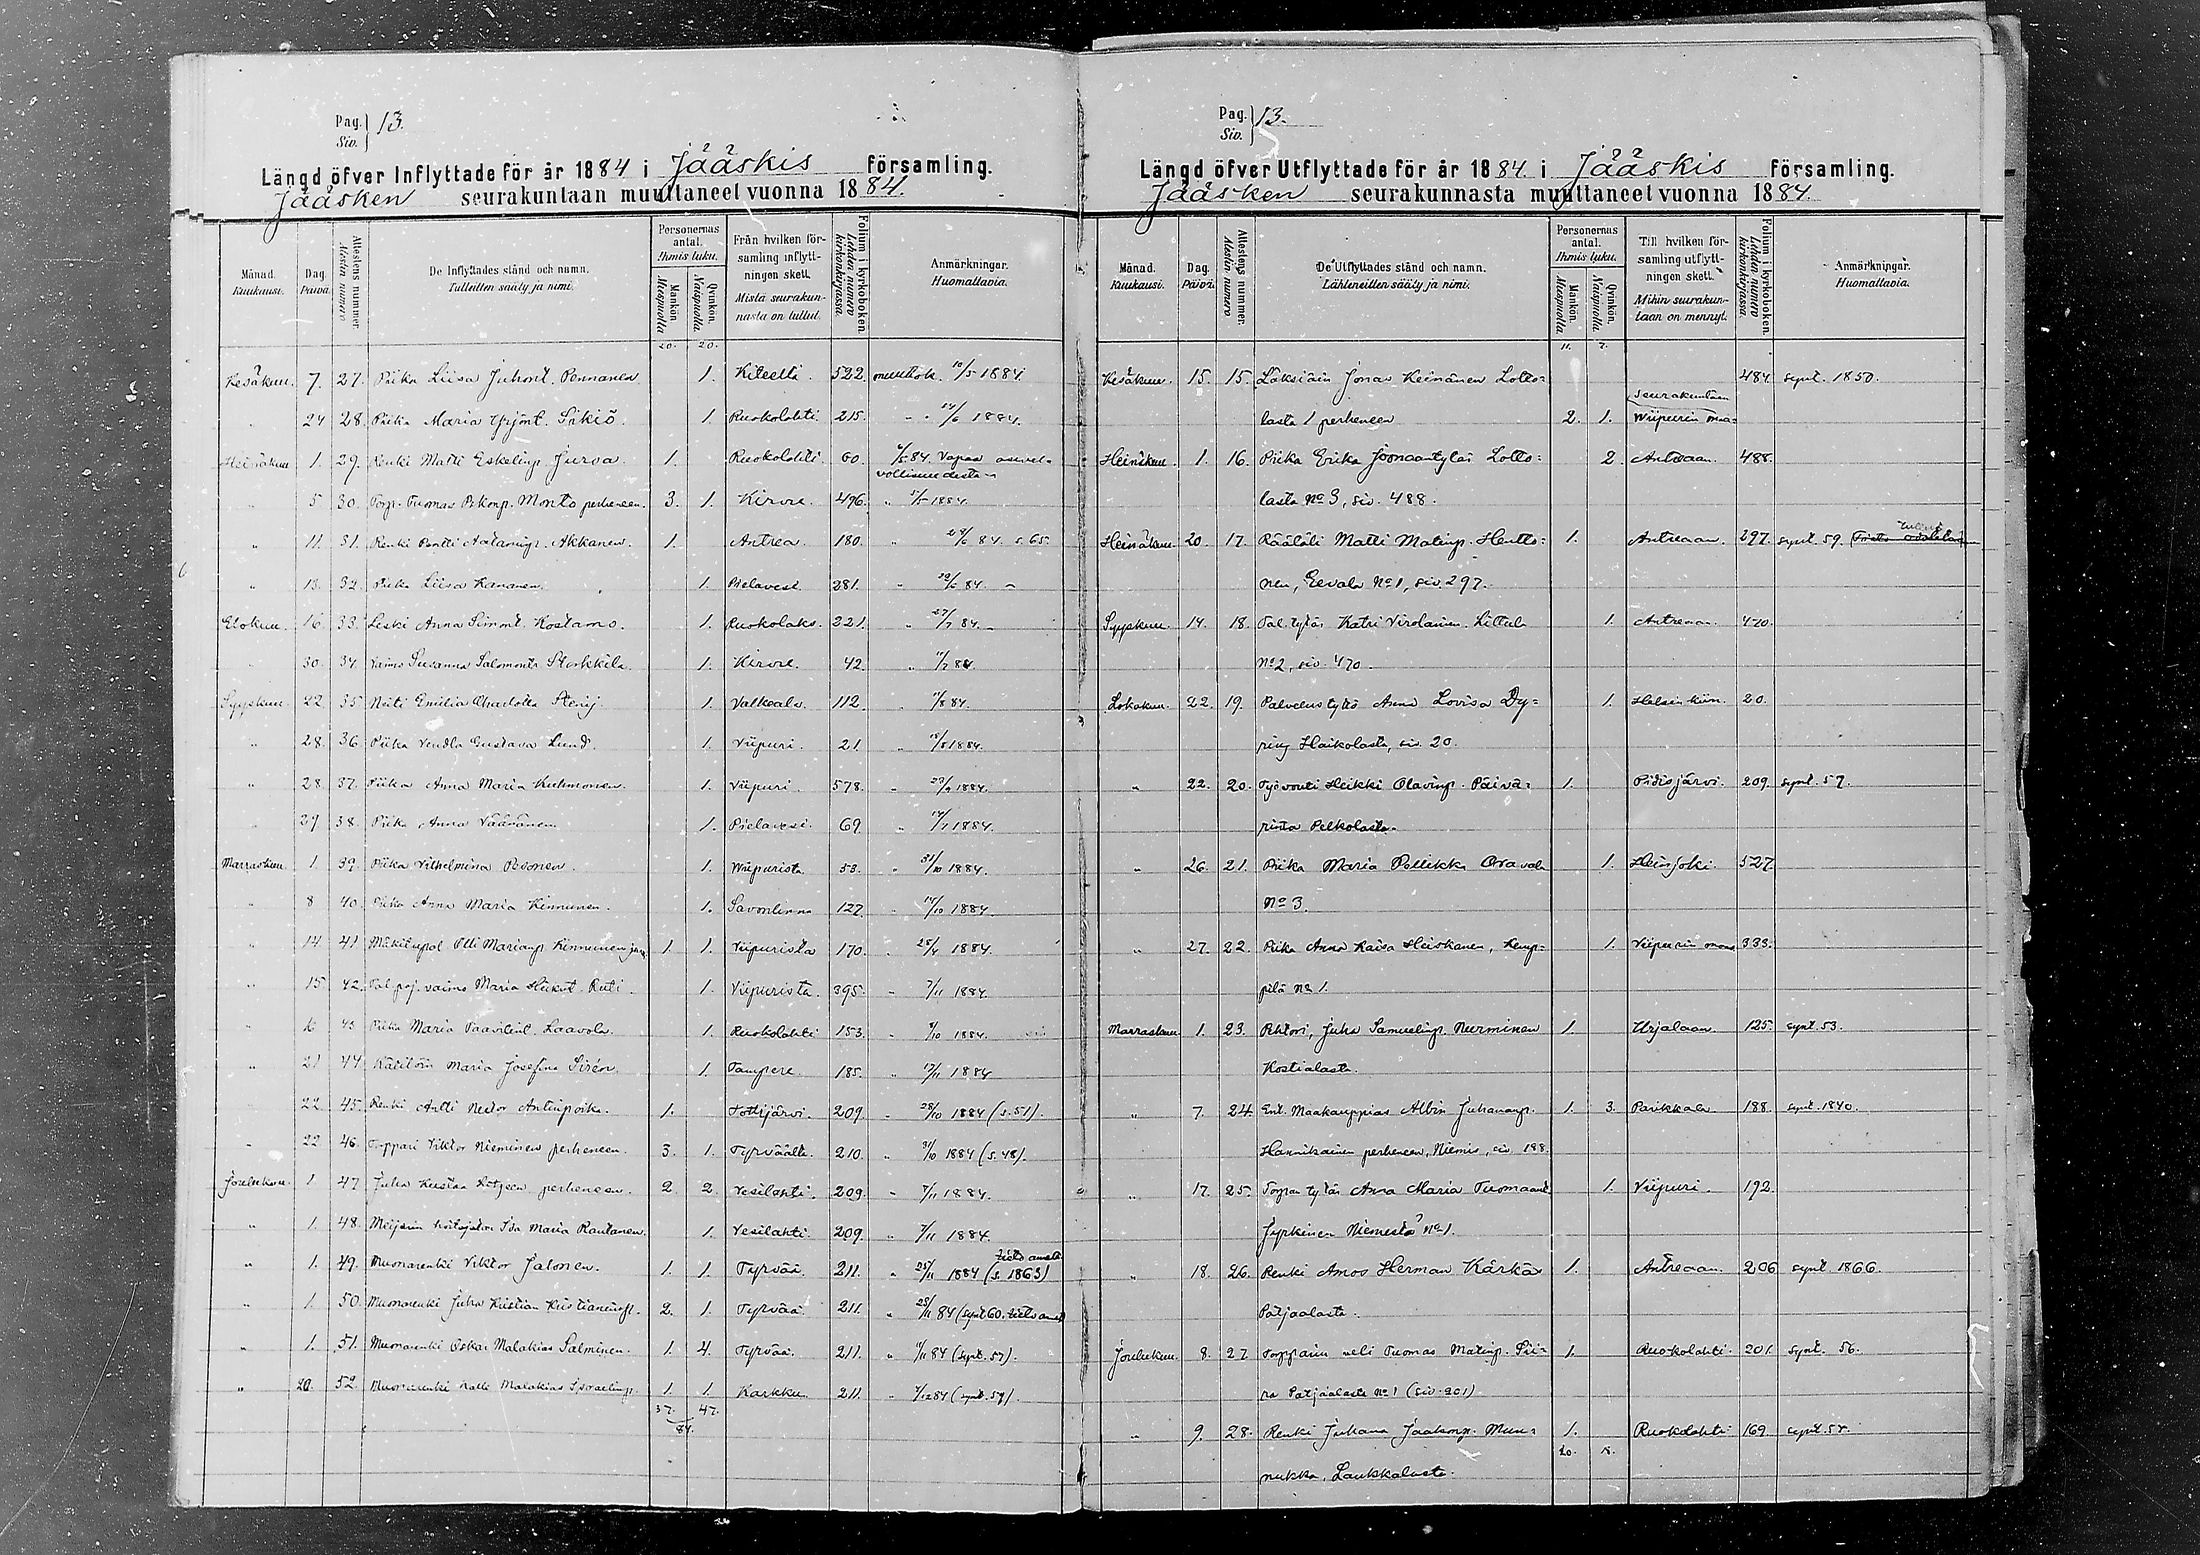 Pag. 13.
Siv.
Längd öfver Inflyttade för år 1884 i Jääskis församling.
Jääsken seurakuntaan muuttaneet vuonna 1884.
Månad. Kuukausi.
Dag. Päivä.
Attestens nummer. Atestin numero
De Inflyttades stånd och namn. Tulleitten sääty ja nimi.
Personernas antal. Ihmis luku.
Mankön. Miespuolia
Qvinkön. Naispuolia.
Från hvilken församling inflyttningen skett. Mistä seurakunnasta on tullut.
Folium i kyrkoboken. Lehden numero kirkonkirjassa.
Anmärkningar. Huomattavia.
20. 20.
Kesäkuu. 7. 27. Piika Liisa Juhont. Pennanen 1. Kiteeltä 522. muuttok. 10/5 1884
24 28. Piika Maria Yrjönt. Sikiö. 1. Ruokolahti 215. " 14/6 1884.
Heinäkuu 1. 29. Renki Matti Eskelinp. Jurva 1. Ruokolahti 60. 84. Vapaa asevelvollisuudesta
" 5 30. Torp. Tuomas Monto perheneen. 3. 1. Kirvu. 496. " 1884.
" 11. 31. Renki Pentti Aataminp. Akkanen. 1. Antrea 180. " 29/6 84 s. 65.
" 13. 32. Piika Liisa Kananen. 1. Pielavesi 281. " 84.
Elokuu. 16. 33. Leski Anna Simont. Kostamo. 1. Ruokolaks. 221. " 27/7 84.
" 30. 34. Vaimo Susanna Salomontr Storkkila. 1. Kirvu. 42. " 84.
Syyskuu 22 35 Neiti Emilia Charlotta Stenij. 1. Valkeala 112. " 84.
" 28. 36. Piika Vendla Gustava Lund. 1. Viipuri. 21. " 1884.
" 28. 37. Piika Anna Maria Kuhmonen. 1. Viipuri. 578. " 23/9 1884.
" 29 38. Piika Anna Vääränen 1. Pielavesi. 69. " 1884.
Marraskuu 1. 39. Piika Vilhelmina Pesonen. 1. Wiipurista 53. " 31/10 1884.
" 8 40. Piika Anna Maria Kinnunen. 1. Savonlinna 127. " 14/10 1884.
" 14 41 Mäkitupal Olli Marianp Kinnunen 1. 1. Viipurista 170. " 1884.
" 15 42. Tal poj. vaimo Maria Heikint. Ruti. 1. Viipurista. 395. " 7/11 1884.
" 43 Piika Maria Paavilint. Laavola. 1. Ruokolahti 153. " 9/10 1884.
" 21 44 Räätälin Maria Josefina Sirén. 1. Tampere. 185. " 17/11 1884
22 45. Renki Antti Nestor Antinpoika. 1. 209. " 28/10 1884 (s. 51).
" 22 46. Torppari Viktor Nieminen perheneen. 3. 1. Tyrväältä. 210. " 31/10 1884 (s. 48).
Joulukuu. 1 47. Juha Kustaa perheneen. 2. 2. Vesilahti. 209. " 7/11 1884.
" 1. 48. Meijerin hoitajatar Ida Maria Rautanen. 1. Vesilahti. 209. " 7/11 1884.
" 1. 49. Muonarenki Viktor Jalonen. 1. 1. Tyrvää. 211. " 25/11 1884 (s. 1863)
" 1. 50. Muonarenki Juha Kristian Kristianinp. 2. 1. Tyrvää. 211. " 28/11 84 (synt 60.
" 1. 51. Muonarenki Oskar Malakias Salminen. 1. 4. Tyrvää. 211. " 84 (synt. 57).
" 20. 52. Muonarenki Kalle Malakias Israelinp. 1. 1. Karkku. 211. " 84 (synt. 59).
37. 47.
84.
Pag. 13.
Siv.
Längd öfver Utflyttade för år 1884. i Jääskis församling.
Jääsken seurakunnasta muuttaneet vuonna 1884.
Månad. Kuukausi.
Dag. Päivä.
Attestens nummer. Atestin numero
De Utflyttades stånd och namn. Lähteneitten sääty ja nimi.
Personernas antal. Ihmis luku.
Mankön. Miespuolia.
Qvinkön. Naispuolia.
Till hvilken församling utflyttningen skett. Mihin seurakuntaan on mennyt.
Folium i kyrkoboken. Lehden numero kirkonkirjassa.
Anmärkningar. Huomattavia.
11. 7.
Kesäkuu. 15. 15. Läksiäin Jonas Keinänen Lotto- 484. synt. 1850.
lasta 1 perheneen 2. 1. Wiipurin maa- seurakuntaan
Heinäkuu. 1. 16. Piika Erika Joonaantytär Lotto- 2. Antreaan. 488.
lasta No 3, siv. 488.
Heinäkuu 20. 17. Räätäli Matti Matinp. Hentto- 1. Antreaan. 297. synt. 59.
nen, Eevala No 1, siv 297.
Syyskuu. 14. 18. Tal. tytär Katri Virolainen. Littula 1. Antreaan. 470.
No 2, siv. 470.
Lokakuu. 22. 19. Palvelustyttö Anna Lovisa Dy- 1. Helsinkiin. 20.
ring Haikolasta, siv. 20.
" 22. 20. Työvouti Heikki Olavinp. Päivä- 1. Pidisjärvi. 209. synt. 57.
rinta Pelkolasta.
" 26. 21. Piika Maria Pollikka Oravala 1. Heinjoki 527.
No 3.
" 27. 22. Piika Anna Kaisa Heiskanen, Kemp- 1. Viipurin maas 333.
pilä No 1.
Marraskuu. 1. 23. Juha Samuelinp. Nurminen 1. Urjalaan. 125. synt. 53.
Kostialasta.
" 7. 24. Ent. Maakauppias Albin Juhananp. 1. 3. Parikkala 188. synt. 1840.
Hannikainen perheneen, Niemis, siv. 188.
" 17. 25. Torpan tytär Anna Maria Tuomaant 1. Viipuri. 192.
Jyrkinen Niemestä No 1.
" 18. 26. Renki Amos Herman Kärkäs 1. Antreaan. 206 synt 1866.
Pätjäälästä.
Joulukuu. 8. 27 Torpparin veli Tuomas Matinp. Sii- 1. Ruokolahti. 201. synt. 56.
ra Pätjäälästä No 1 (siv. 201)
" 9. 28. Renki Juhana Jaakonp. Mun- 1. Ruokolahti 169. synt. 58.
nukka, Laukkalasta.
20.